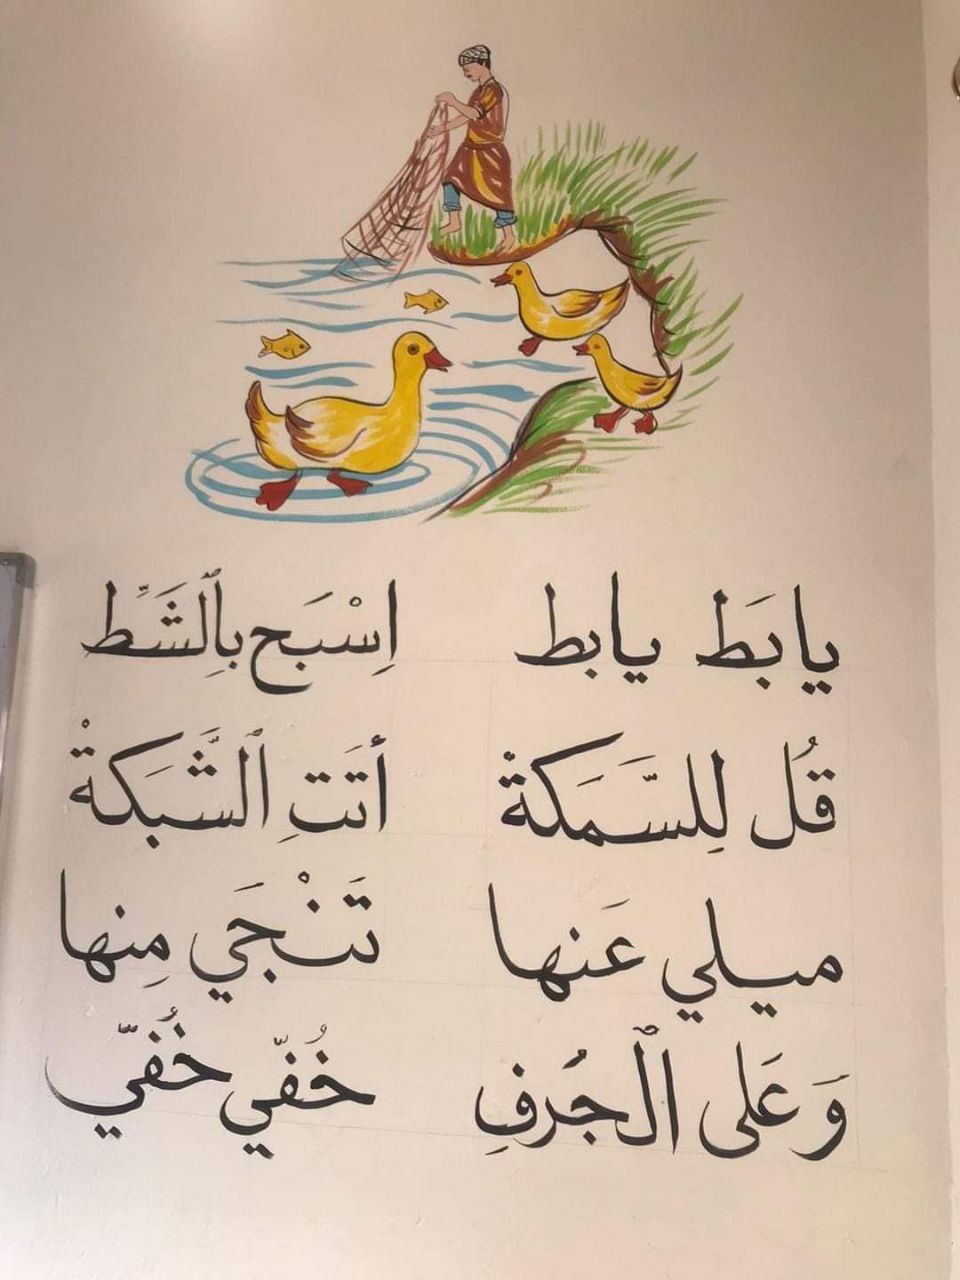 يا بَط يا بط اِسْبَح بِٱلشَّط
قُل لِلسَّمَكَةْ أتَتِ ٱلشَّبَكَةْ
ميلي عَنها تَنْجَي مِنها
وَعَلى ٱلْجُرفِ خُفّي خُفّي